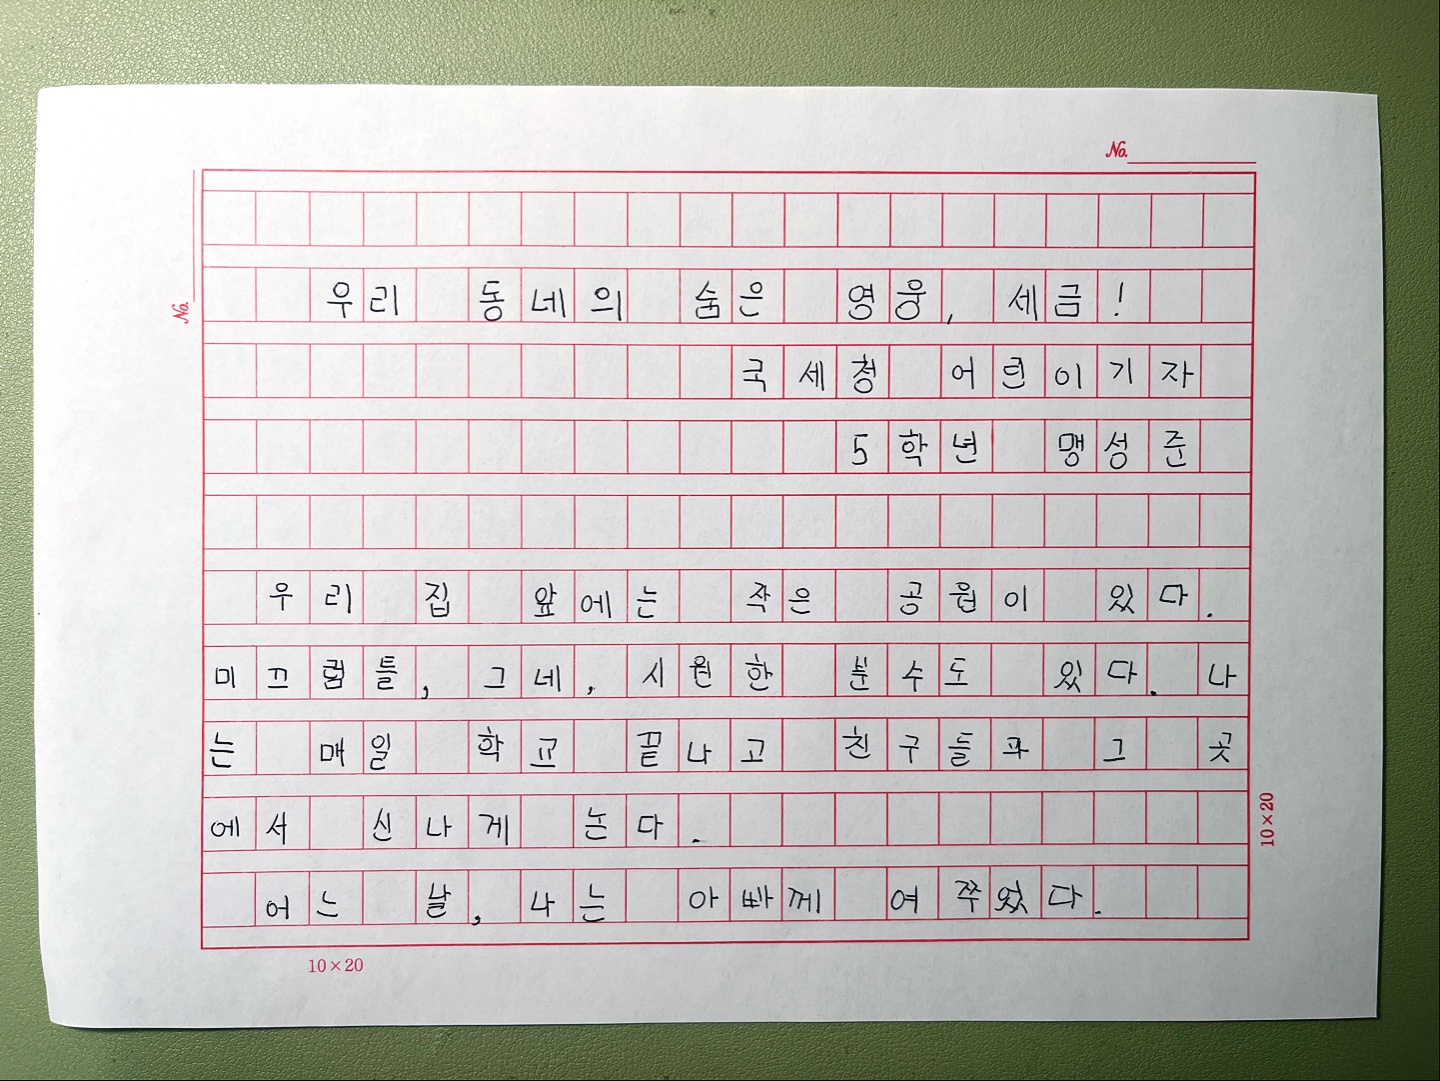 No.
No.
우리 동네의 숨은 영웅, 세금!
국세청 어린이기자
5학년 맹성준
우리 집 앞에는 작은 공원이 있다.
미끄럼틀, 그네, 시원한 분수도 있다. 나
는 매일 학교 끝나고 친구들과 그 곳
에서 신나게 논다.
어느 날, 나는 아빠께 여쭈었다.
10×20
10×20